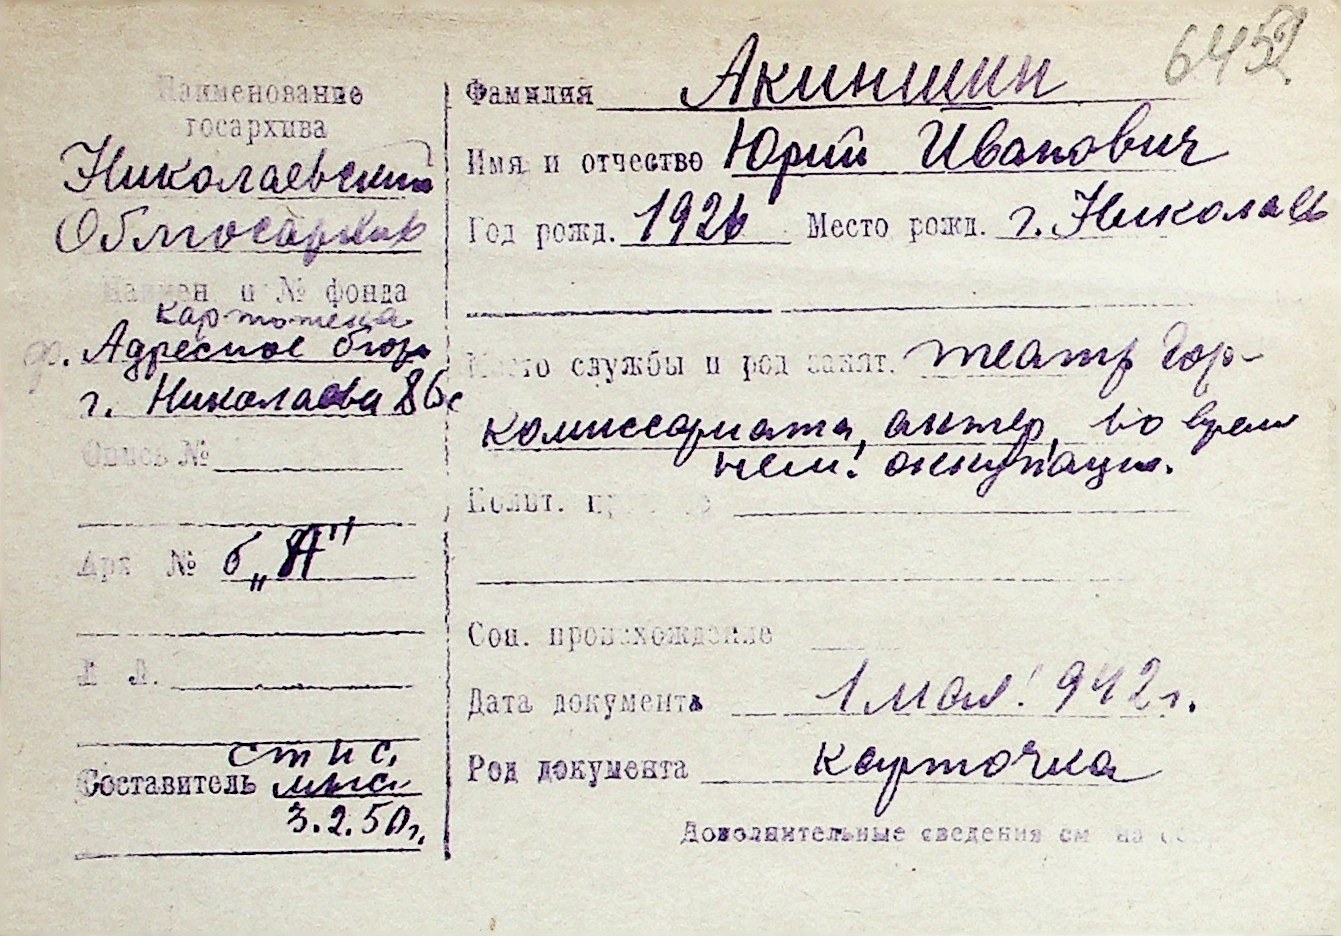 6452
Наименование
госархива
Николаевский
Облгосархив
Наимен и № фонда
картотека
ф. Адресное бюро
г. Николаева
Опись №
Арх №
б „А"
Л Л.
Составитель
3.2.50 г.
Фамилия Акиншин
Имя и отчество Юрий Иванович
Год рожд. 1926 Место рожд. г. Николаев
Место службы и род занят. театр Гор-
комиссариата, актер, во время
нем. оккупации.
Полит.
Соц. происхождение
Дата документа 1 мая 942 г.
Род документа карточка
Дополнительные сведения см на обор